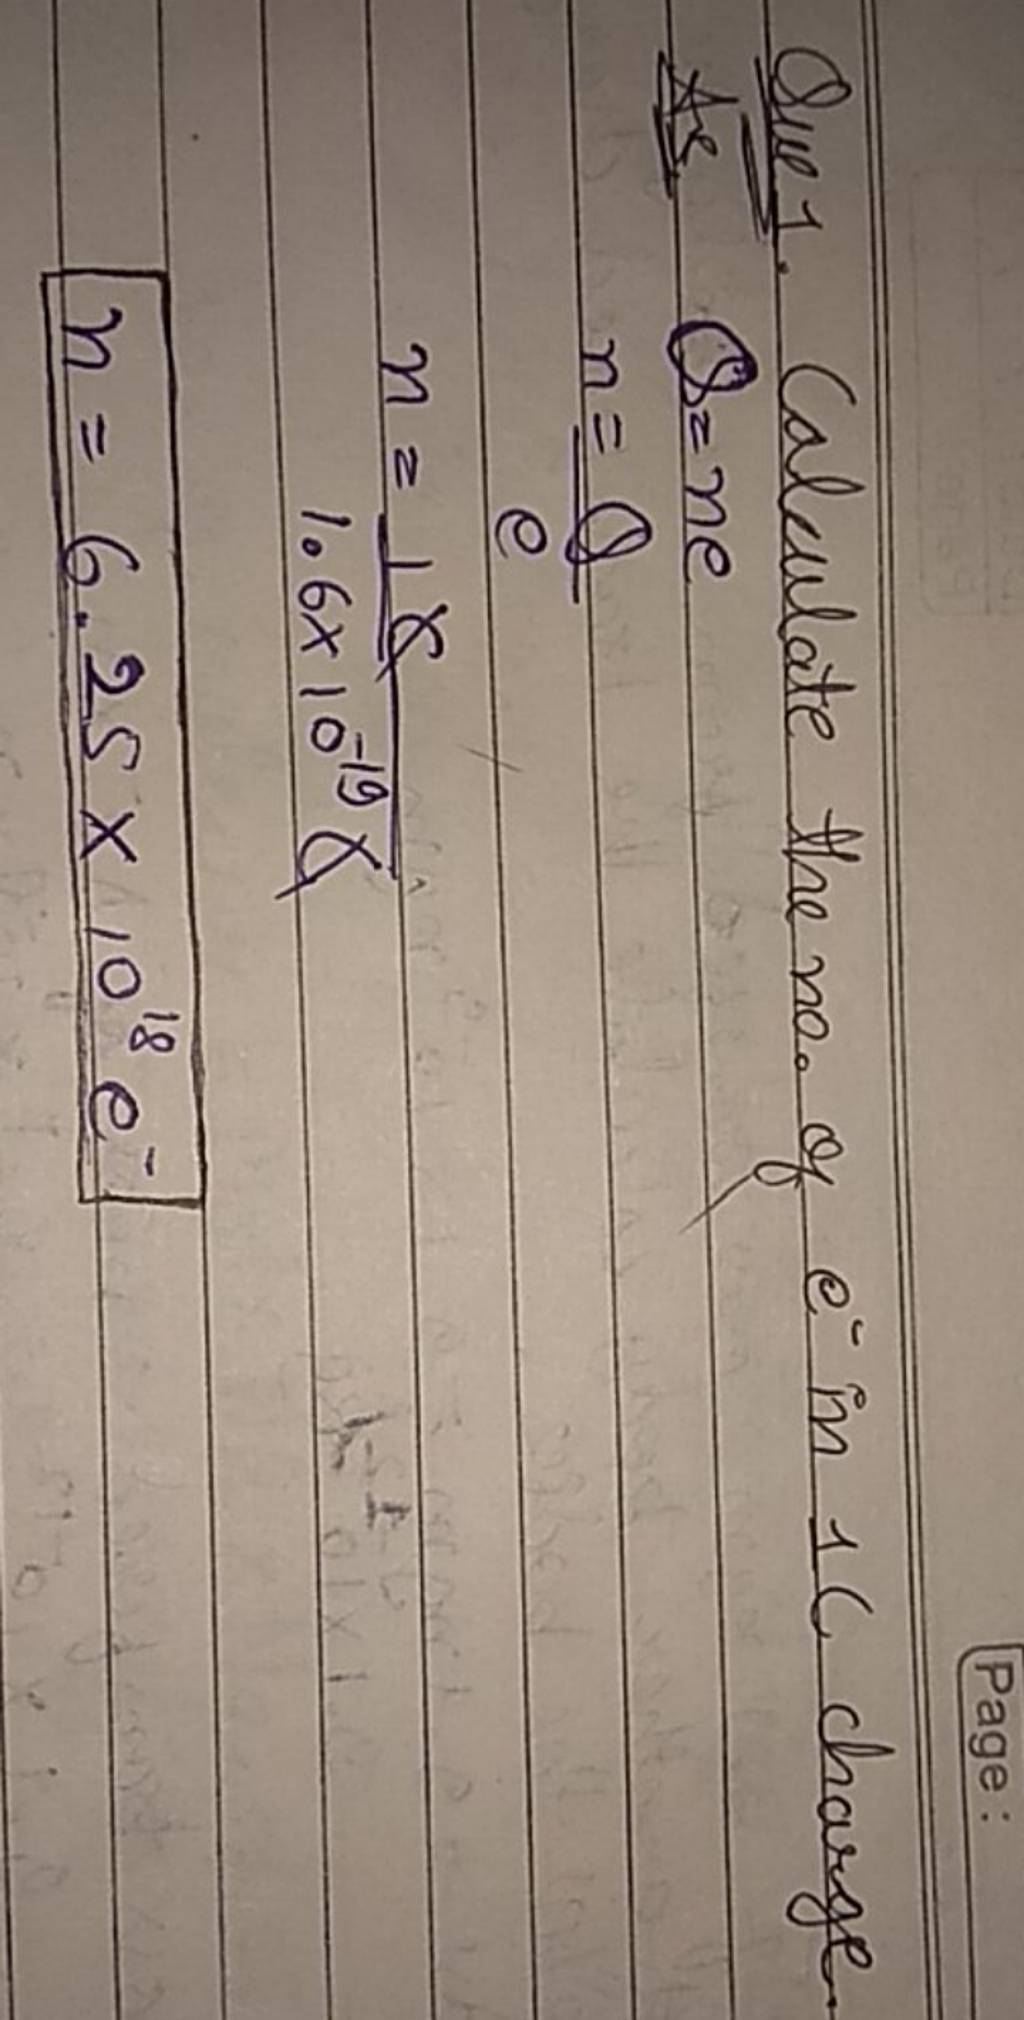 Page :
Que 1. Calculate the no. of e⁻ in 1C charge.
Ans Q=ne
n = Q
e
n = 1C
1.6×10⁻¹⁹ C
n = 6.25 × 10¹⁸ e⁻